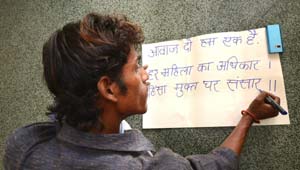 आवाज दो हम एक है.
हर महिला का अधिकार ।
हिंसा मुक्त घर संसार ॥